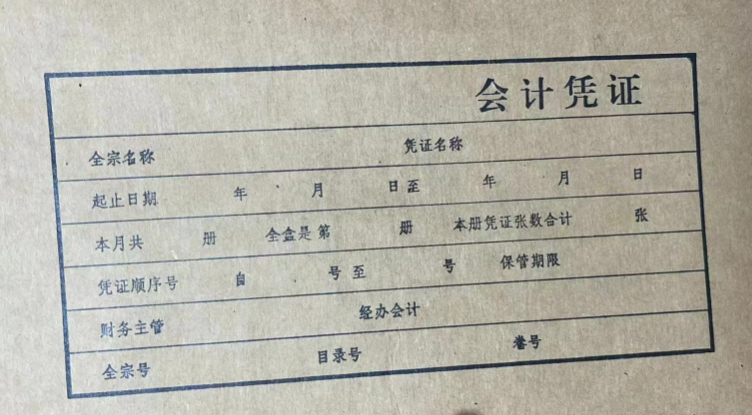 会计凭证
全宗名称 凭证名称
起止日期 年 月 日至 年 月 日
本月共 册 全盒是第 册 本册凭证张数合计 张
凭证顺序号 自 号至 号 保管期限
财务主管 经办会计
全宗号 目录号 卷号